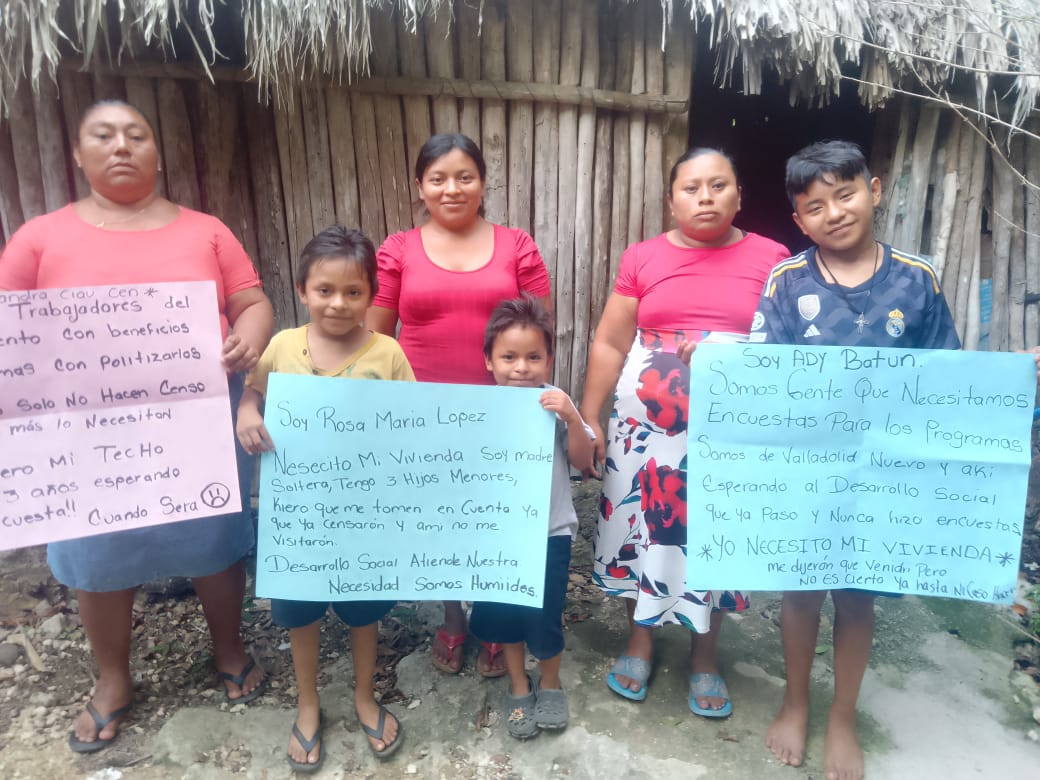 andra Ciau Cen *
Trabajadores del
ento con beneficios
mas con Politizarlos
o Solo No Hacen Censo
más lo Necesitan
ero Mi Techo
3 años esperando
cuesta!! Cuando Sera
Soy Rosa Maria Lopez
Nesecito Mi Vivienda Soy madre
Soltera, Tengo 3 Hijos Menores,
Kiero que me tomen en Cuenta Ya
que ya Censarón y ami no me
Visitarón.
Desarrollo Social Atiende Nuestra
Necesidad Somos Humildes.
Soy ADY Batun.
Somos Gente Que Necesitamos
Encuestas Para los Programas
Somos de Valladolid Nuevo y aki
Esperando al Desarrollo Social
que ya Paso y Nunca hizo encuestas
*YO NECESITO MI VIVIENDA*
me dijerón que Venian Pero
NO ES Cierto Ya hasta Ni Caso